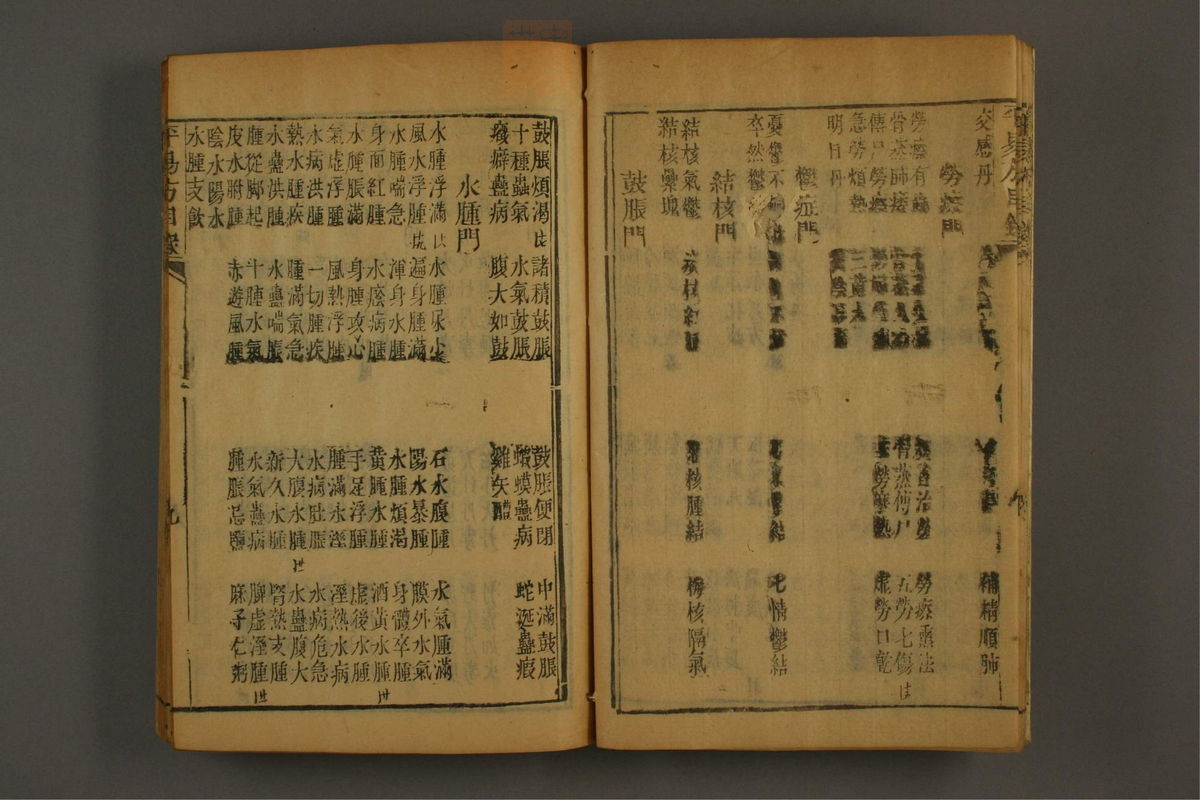 平易方目錄
交感丹 補精順肺
勞瘵門
勞瘵有 治勞 勞瘵熏法
骨蒸肺痿 骨蒸傳尸 五勞七傷
傳尸勞瘵 勞 熱 虛勞口乾
急勞煩熱
明目丹
鬱症門
憂鬱不 結 七情鬱結
卒然鬱
結核門
結核氣鬱 核 核腫結 梅核隔氣
結核 塊
鼓脹門
鼓脹煩渴 諸積鼓脹 鼓脹便閉 中滿鼓脹
十種蠱氣 水氣鼓脹 蝦蟆蠱病 蛇涎蠱瘕
癥癖蠱病 腹大如鼓 雞矢醴
水腫門
水腫浮滿 水腫尿少 石水腹腫 水氣腫滿
風水浮腫 遍身腫滿 陽水暴腫 膜外水氣
水腫喘急 渾身水腫 水腫煩渴 身體卒腫
身面紅腫 水廢病腫 黃腫水腫 酒黃水腫
水腫脹滿 身腫攻心 手足浮腫 虛後水腫
氣虛浮腫 風熱浮腫 腫滿水溼 溼熱水病
水病洪腫 一切腫疾 水病肚脹 水病危急
熱水腫疾 腫滿氣急 大腹水腫 水蠱腹大
水蠱洪腫 水蠱喘脹 新久水腫 腎熱支腫
腫從脚起 十腫水氣 水氣蠱病 脾虛溼腫
皮水胕腫 赤遊風腫 腫脹忌鹽 麻子仁粥
陰水陽水
水腫支飲
平易方目錄 九